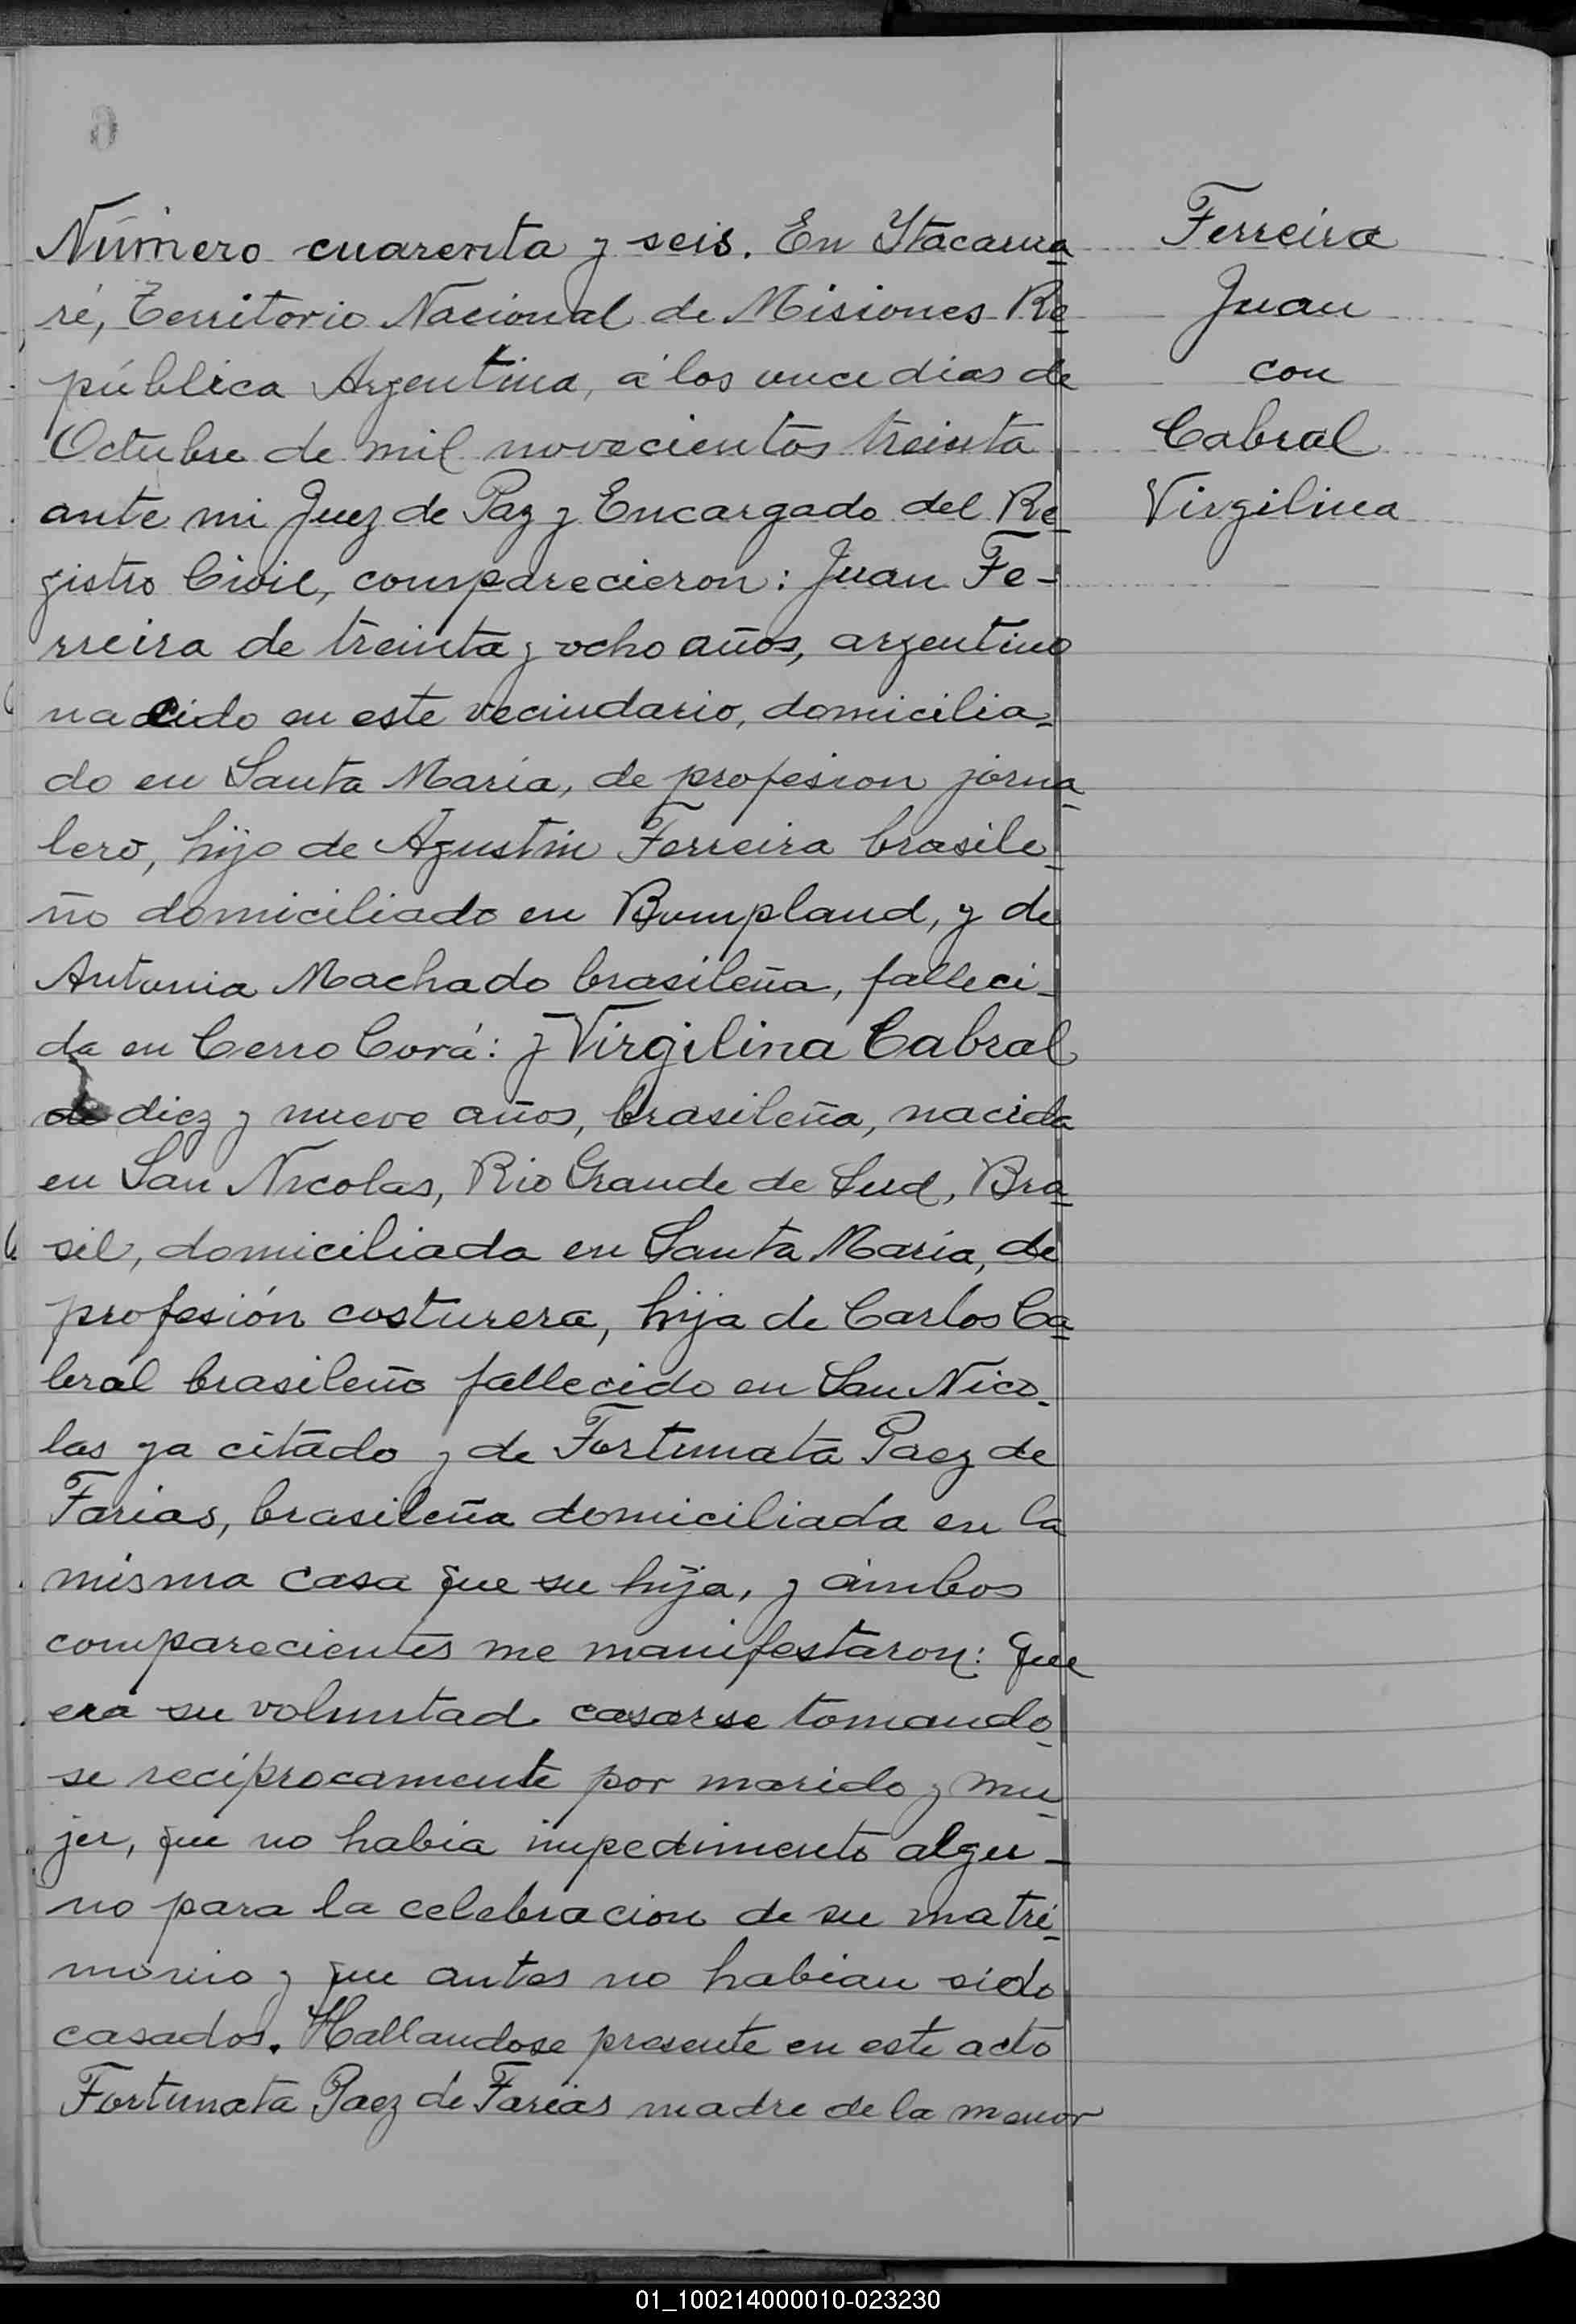 Número cuarenta y seis. En Itacarua
ré, Territorio Nacional de Misiones Re
pública Argentina, á los once dias de
Octubre de mil novecientos treinta
ante mi Juez de Paz y Encargado del Re
gistro Civil, comparecieron: Juan Fe-
rreira de treinta y ocho años, argentino
nacido en este vecindario, domicilia-
do en Santa María, de profesion jorna
lero, hijo de Agustin Ferreira brasile
ño domiciliado en Bompland, y de
Antonia Machado brasileña, falleci-
da en Cerro Corá: y Virgilina Cabral
de diez y nueve años, brasileña, nacida
en San Nicolas, Rio Grande de Sud, Bra
sil, domiciliada en Santa María, de
profesión costurera, hija de Carlos Ca
bral brasileño fallecido en San Nico-
las ya citado y de Fortunata Paez de
Farias, brasileña domiciliada en la
misma casa que su hija, y ámbos
comparecientes me manifestaron: que
era su voluntad casarse tomando-
se recíprocamente por marido y mu-
jer, que no habia impedimento algu-
no para la celebracion de su matri-
monio y que antes no habian sido
casados. Hallandose presente en este acto
Fortunata Paez de Farias madre de la menor
Ferreira
Juan
con
Cabral
Virgilina
01_100214000010-023230